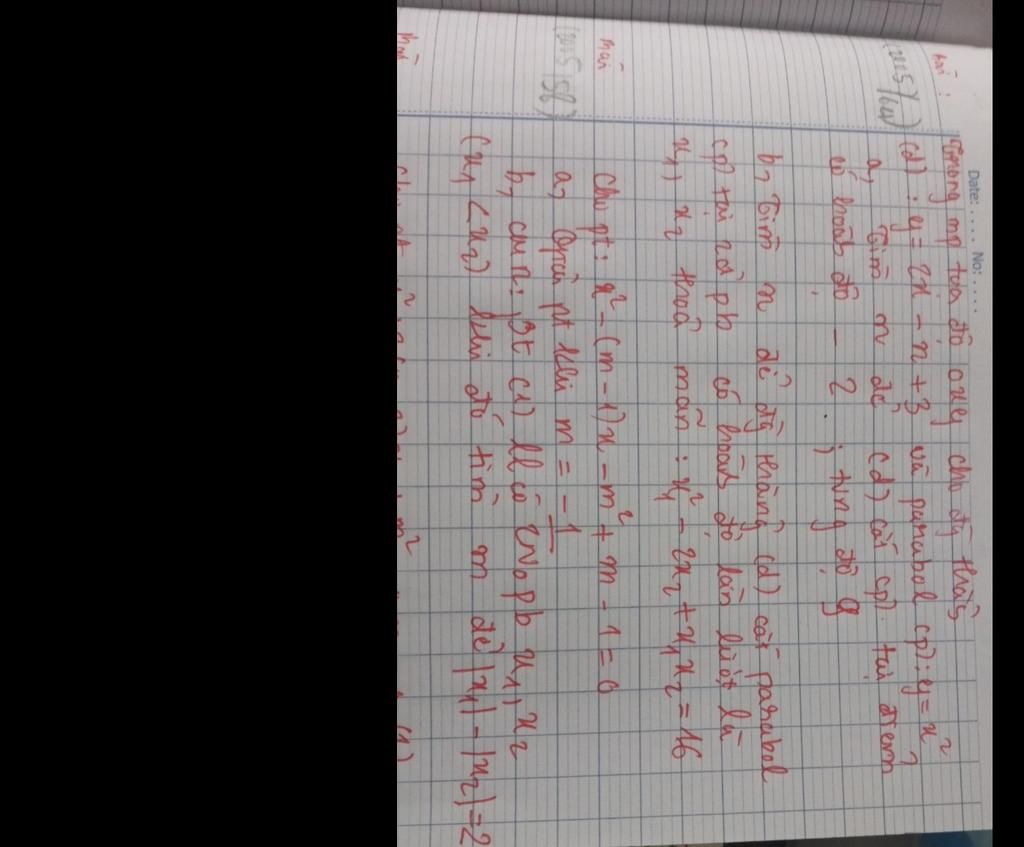 Date: .... No: ....
Trong mp tọa độ oxy cho đg thẳng
(d): y = 2x - n + 3 và parabol (P): y = x²
a, Tìm n để (d) cắt (P) tại điểm
có hoành độ - 2.
b, Tìm n để đg thẳng (d) cắt parabol
(P) tại 2 đ pb có hoành độ lần lượt là
x₁, x₂ thoả mãn: x₁² - 2x₂ + x₁x₂ = 16
Cho pt: x² - (m - 1)x - m² + m - 1 = 0
a, Giải pt khi m = -1
b, cmr: pt (1) ll có 2No pb x₁, x₂
(x₁ < x₂) khi đó tìm m để |x₁| - |x₂| = 2
(1)